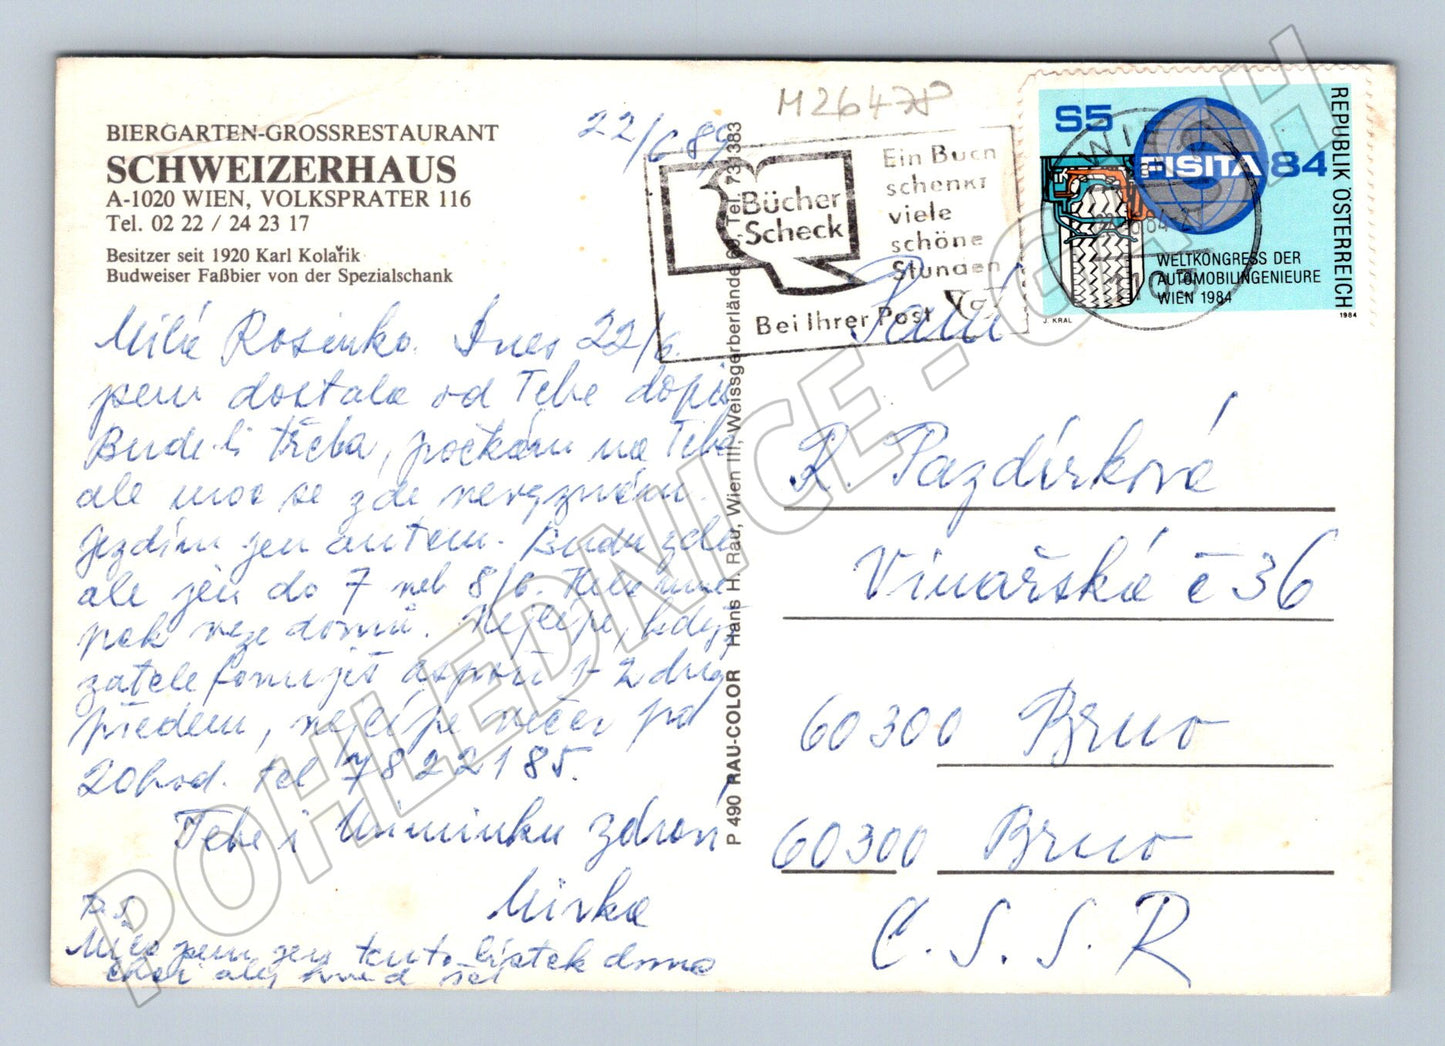 BIERGARTEN-GROSSRESTAURANT
SCHWEIZERHAUS
A-1020 WIEN, VOLKSPRATER 116
Tel. 02 22 / 24 23 17
Besitzer seit 1920 Karl Kolařik
Budweiser Faßbier von der Spezialschank
22/6 89
Milá Rosinko. Dnes 22/6.
jsem dostala od Tebe dopis
Bude-li třeba, počkám na Tebe
ale moc se zde nevyznám.
Jezdím jen autem. Budu zde
ale jen do 7 neb 8/6.
pak nejse domů. Nejlépe, když
zatelefonuješ aspoň 1-2 dny
předem, nejlépe večer po
20 hod. tel 7822185.
Tebe i Maminku zdraví
Mirka
P.S.
Milá jsem jen tento lístek doma
P 490 RAU-COLOR Hans H. Rau, Wien III, Weissgerberlände 60 Tel. 731383
M26478
Bücher
Scheck
Ein Buch
schenkt
viele
schöne
Stunden
Bei Ihrer Post
S5
WIEN
FISITA 84
WELTKONGRESS DER
AUTOMOBILINGENIEURE
WIEN 1984
REPUBLIK ÖSTERREICH
J. KRAL
1984
1103
Paní
R. Pazdírková
Vinařská č 36
60300 Brno
60300 Brno
Č.S.S.R
POHLEDNICE-CACH